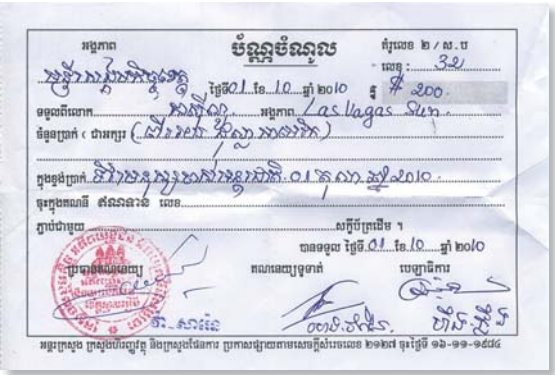 អង្គភាព ប័ណ្ណចំណូល គំរូលេខ ២ / ស.ប
លេខ : 32
ថ្ងៃទី 01 ខែ 10 ឆ្នាំ 2010 # 200
ទទួលពីលោក អង្គភាព Las Vagas Sun
ចំនួនប្រាក់ ( ជាអក្សរ ( ពីររយ ដុល្លា អាមេរិក )
ក្នុងខ្ទង់ប្រាក់ ទិវាមនុស្សចាស់អន្តរជាតិ 01 តុលា ឆ្នាំ 2010
ចុះក្នុងគណនី ឥណទាន លេខ
ភ្ជាប់ជាមួយ សក្ខីប័ត្រដើម ។
បានទទួល ថ្ងៃទី 01 ខែ 10 ឆ្នាំ ២០10
ប្រធានគណនេយ្យ គណនេយ្យទូទាត់ បេឡាធិការ
អន្តរក្រសួង ក្រសួងហិរញ្ញវត្ថុ និងក្រសួងផែនការ ប្រកាសផ្សាយតាមសេចក្តីសំរេចលេខ ២១២៧ ចុះថ្ងៃទី ១៦-១១-១៩៨៤